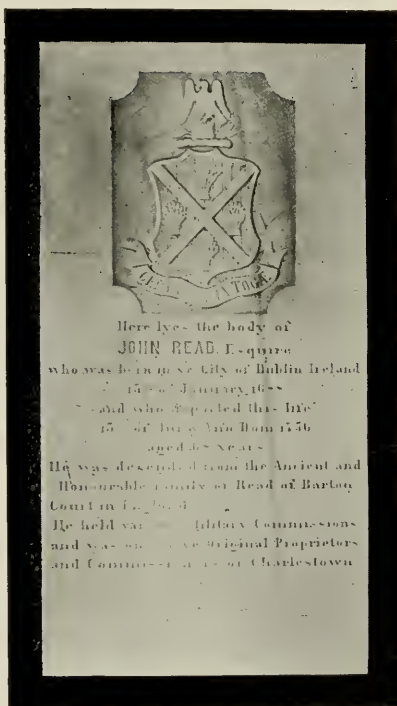 IN TOGA
Here lyes the body of
JOHN READ. Esquire
who was born in ye City of Dublin Ireland
15 of January 1688
and who departed this life
15 of Ann Dom 1756
aged 68 years
He was descended from the Ancient and
Honourable family of Read of Barton
Court in England
He held Military Commissions
and was one ye Original Proprietors
and Commissioners of Charlestown